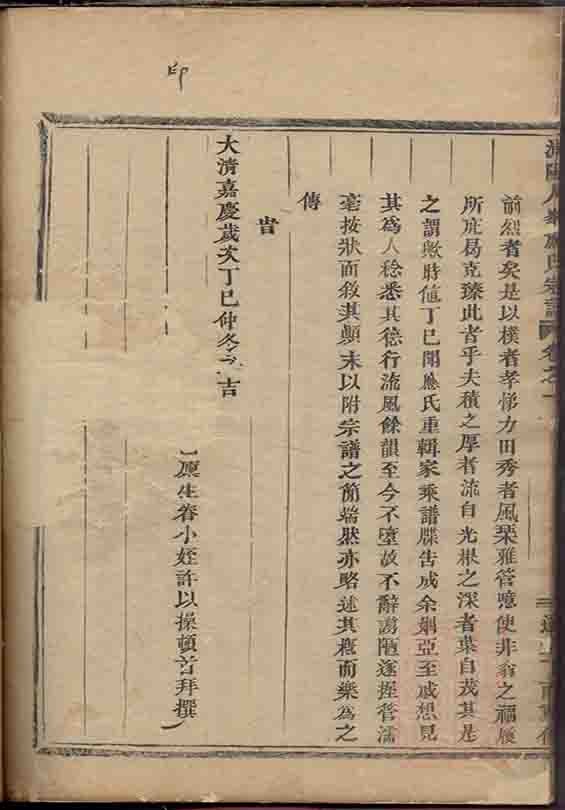 前烈者矣是以樸者孝悌力田秀者風琴雅管噫使非翁之福展
所庇曷克臻此者乎夫積之厚者流自光根之深者葉自茂其是
之謂歟時值丁巳閏應氏重輯家乘譜牒告成余姻亞至戚想見
其為人稔悉其德行流風餘韻至今不墮故不辭謭陋遂握管濡
毫按狀而敘其顛末以附宗譜之簡端然亦略述其槪而樂為之
傳
旹
大清嘉慶歲次丁巳仲冬之吉
廩生眷小姪許以操頓首拜撰
印